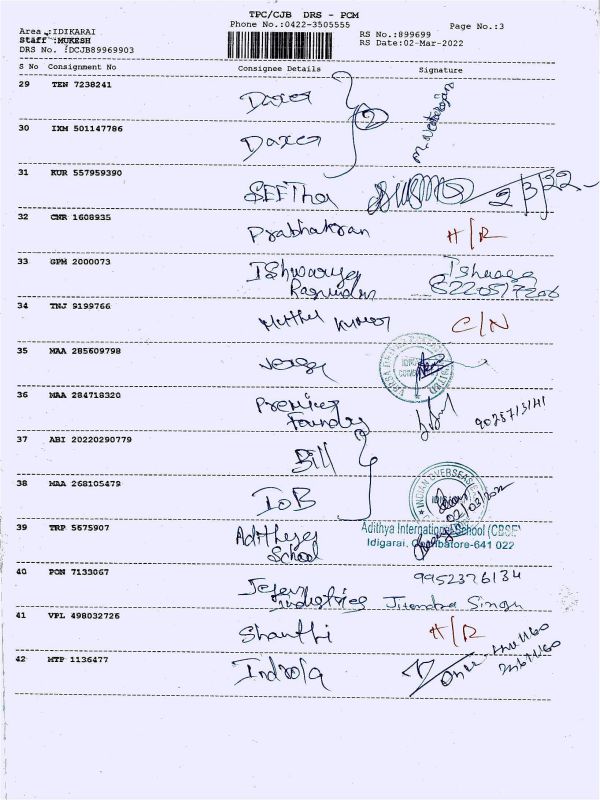 TPC/CJB DRS - PCM
Phone No.:0422-3505555
Page No.:3
Area :IDIKARAI
Staff :MUKESH
DRS No. :DCJB89969903
RS No.:899699
RS Date:02-Mar-2022
S No Consignment No Consignee Details Signature
29 TEN 7238241
2
30 IXM 501147786
31 KUR 557959390
SEETha 2/3/22
32 CNR 1608935
Prabhakran H/R
33 GPM 2000073
Ishwarya
34 TNJ 9199766
Kumar C/N
35 MAA 285609798
36 MAA 284718320
Premier
Foundry
37 ABI 20220290779
Bill
38 MAA 268105479
IOB INDIAN OVERSEAS
02/03/2022
39 TRP 5675907
Adithya International School (CBSE)
Adithya
School
Idigarai, Coimbatore-641 022
40 PON 7133067
9952376134
industries Jitendra Singh
41 VPL 498032726
Shanthi H/R
42 MTP 1136477
Indrola